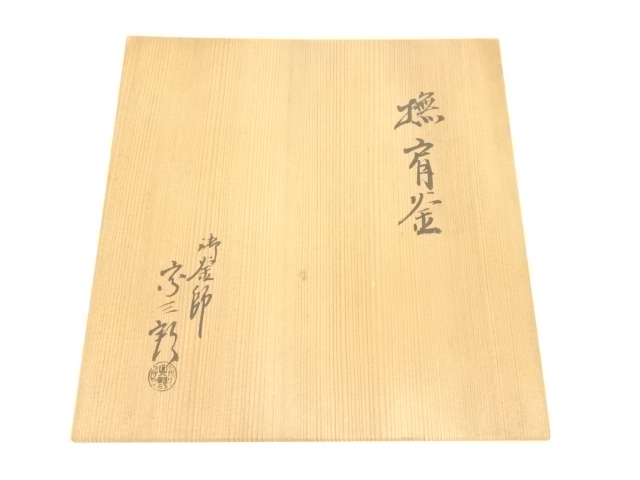 撫肩釜
御釜師
宗三郎